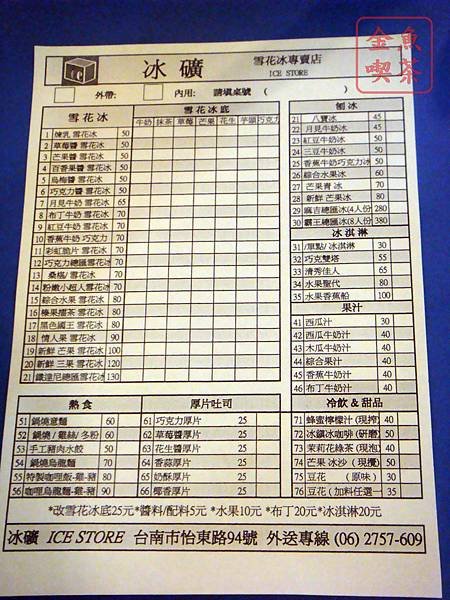 金魚喫茶
ICE
冰礦 雪花冰專賣店
ICE STORE
外帶: 內用: 請填桌號 ( )
雪花冰 雪花冰底
牛奶 抹茶 草莓 芒果 花生 芋頭 巧克力
1 煉乳 雪花冰 50
2 草莓醬 雪花冰 50
3 芒果醬 雪花冰 50
4 百香果醬 雪花冰 50
5 烏梅醬 雪花冰 50
6 巧克力醬 雪花冰 50
7 月見牛奶 雪花冰 65
8 布丁牛奶 雪花冰 70
9 紅豆牛奶 雪花冰 70
10 香蕉牛奶 巧克力 70
11 彩虹脆片 雪花冰 70
12 巧克力總匯雪花冰 70
13 桑塔/ 雪花冰 70
14 粉嫩小超人雪花冰 70
15 綜合水果 雪花冰 80
16 榛果擂茶 雪花冰 80
17 黑色國王 雪花冰 80
18 情人果 雪花冰 90
19 新鮮 芒果 雪花冰 100
20 新鮮 三果 雪花冰 120
21 鐵達尼總匯雪花冰 130
刨冰
21 八寶冰 45
22 月見牛奶冰 45
23 紅豆牛奶冰 50
24 三豆牛奶冰 50
25 香蕉牛奶巧克力冰 50
26 綜合水果冰 60
27 芒果青 冰 70
28 新鮮 芒果冰 80
29 麻吉總匯冰(4人份) 280
30 霸王總匯冰(8人份) 380
冰淇淋
31 /單點/ 冰淇淋 30
32 巧克雙塔 55
33 清秀佳人 65
34 水果聖代 80
35 水果香蕉船 100
果汁
41 西瓜汁 30
42 西瓜牛奶汁 40
43 木瓜牛奶汁 40
44 綜合果汁 40
45 香蕉牛奶汁 40
46 布丁牛奶汁 40
熱食
51 鍋燒意麵 60
52 鍋燒/ 雞絲/ 冬粉 60
53 手工豬肉水餃 50
54 鍋燒烏龍麵 70
55 特製咖哩飯-雞-豬 80
56 咖哩烏龍麵-雞-豬 90
厚片吐司
61 巧克力厚片 25
62 草莓醬厚片 25
63 花生醬厚片 25
64 香蒜厚片 25
65 奶酥厚片 25
66 椰香厚片 25
冷飲 & 甜品
71 蜂蜜檸檬汁 (現搾) 40
72 冰鎮冰咖啡 (研磨) 50
73 茉莉花綠茶 (現泡) 40
74 芒果 冰沙 (現攪) 50
75 豆花 (原味) 30
76 豆花 (加料任選一 35
*改雪花冰底25元*醬料/配料5元 *水果10元 *布丁20元*冰淇淋20元
冰礦 ICE STORE 台南市怡東路94號 外送專線 (06) 2757-609